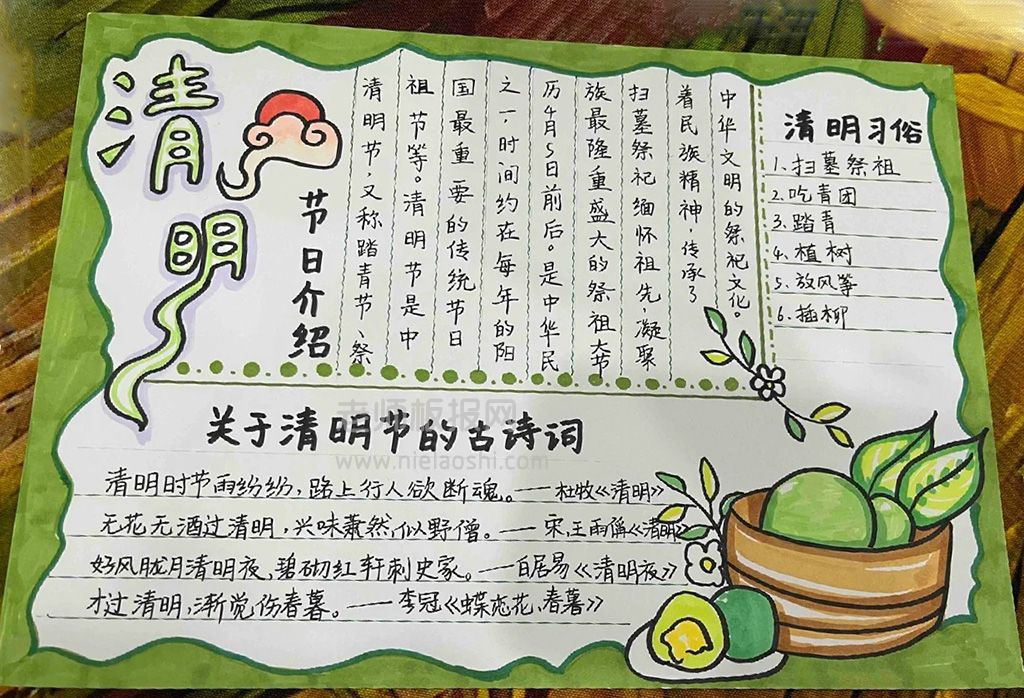 清明
节日介绍
清明节,又称踏青节、祭
祖节等。清明节是中
国最重要的传统节日
之一,时间约在每年的阳
历4月5日前后。是中华民
族最隆重盛大的祭祖大节
扫墓祭祀缅怀祖先,凝聚
着民族精神,传承了
中华文明的祭祀文化。
清明习俗
1.扫墓祭祖
2.吃青团
3.踏青
4.植树
5.放风筝
6.插柳
老师板报网
www.nielaoshi.com
关于清明节的古诗词
清明时节雨纷纷,路上行人欲断魂。——杜牧《清明》
无花无酒过清明,兴味萧然似野僧。——宋,王雨偁《清明》
好风胧月清明夜,碧砌红轩刺史家。——白居易《清明夜》
才过清明,渐觉伤春暮。——李冠《蝶恋花,春暮》